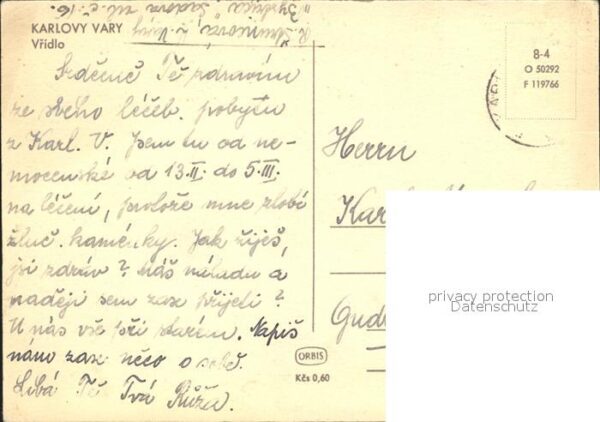 KARLOVY VARY
Vřídlo
8-4
O 50292
F 119766
Srdečně Tě zdravím
ze svého léčeb. pobytu
z Karl. V. Jsem tu od ne-
mocenské od 13.II. do 5.III.
na léčení, protože mne zlobí
žluč. kaménky. Jak žiješ,
jsi zdráv? Máš náladu a
naději sem zas přijeti?
U nás vše při starém. Napiš
nám zas něco o sobě.
Líbá Tě Tvá Růža.
Herrn
ORBIS
Kčs 0,60
privacy protection
Datenschutz